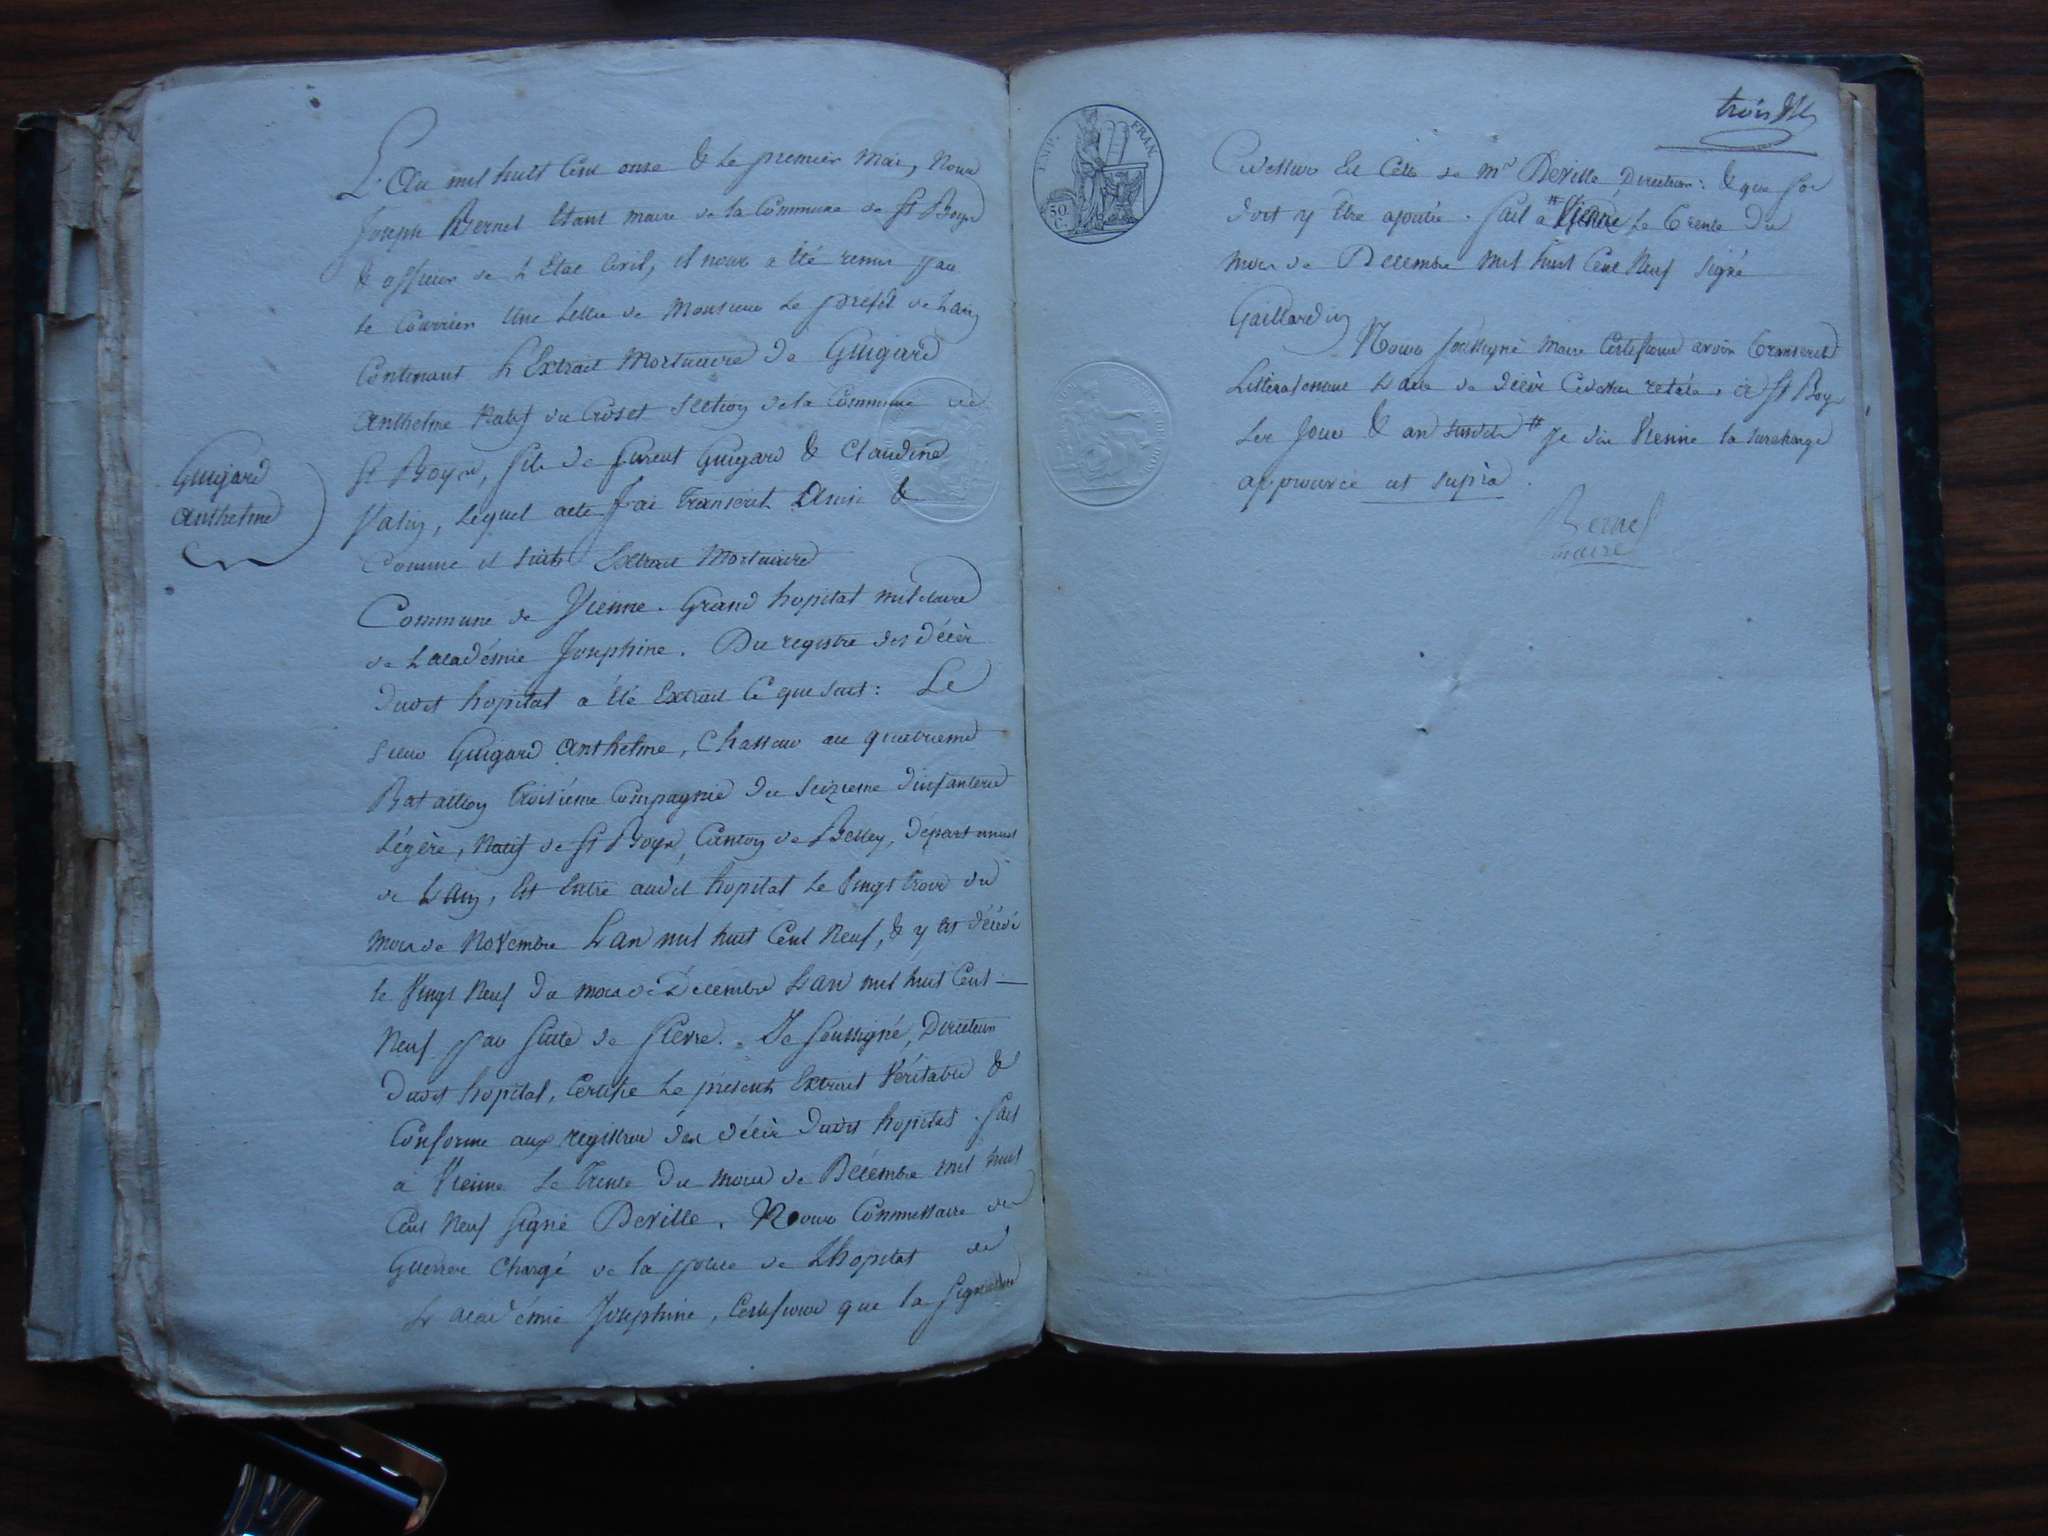 L'An mil huit Cent onze & le premier Mai, Nous
Joseph Bernet Etant maire de la Commune de St Boys
& officier de L Etat Civil, il nous a été remis par
le Courrier Une Lettre de Monsieur Le préfet de Lain
Contenant L'Extrait Mortuaire de Guigard
Anthelme Natif du Croset Section de la Commune de
St Boys, fils de Guigard & Claudine
lequel acte J'ai transcrit Ainsi &
Comme il suit Extrait Mortuaire
Guigard
Anthelme
Commune de Vienne. Grand hopital militaire
de Lacadémie Josephine. Du registre des décès
dudit hopital a été Extrait Ce que suit: Le
sieur Guigard Anthelme, Chasseur au quatrieme
Bataillon troisième Compagnie du Seizieme d'infanterie
Légère, Natif de St Boys, Canton de Belley, départment
de Lain, Est Entré audit hopital Le Vingt trois du
Mois de Novembre L an mil huit Cent Neuf, & y est décédé
le Vingt Neuf du mois de Décembre L an mil huit Cent
Neuf par suite de fièvre. Je soussigné, Directeur
dudit hopital, Certifie Le présent Extrait Véritable &
Conforme aux registres des décès dudit hopital. fait
à Vienne Le Trente du mois de Décembre mil huit
Cent Neuf signé Deville. Nous Commissaire des
Guerres Chargé de la police de L'hopital de
L académie Josephine, Certifions que la signature
EMP. FRAN.
50
C.
Cidessus Est Celle de Mr Deville Directeur: & que foi
doit y Etre ajoutée. fait à # Vienne Le Trente Du
mois de Décembre Mil huit Cent Neuf signé
Gaillardin
Nous soussigné Maire Certifions avoir transcrit
Littéralement L'acte de décès Cidessus relaté, à St Boys
Les Jour & an susdits # Je dis Vienne la surcharge
approuvée ut suprà.
Bernet
maire